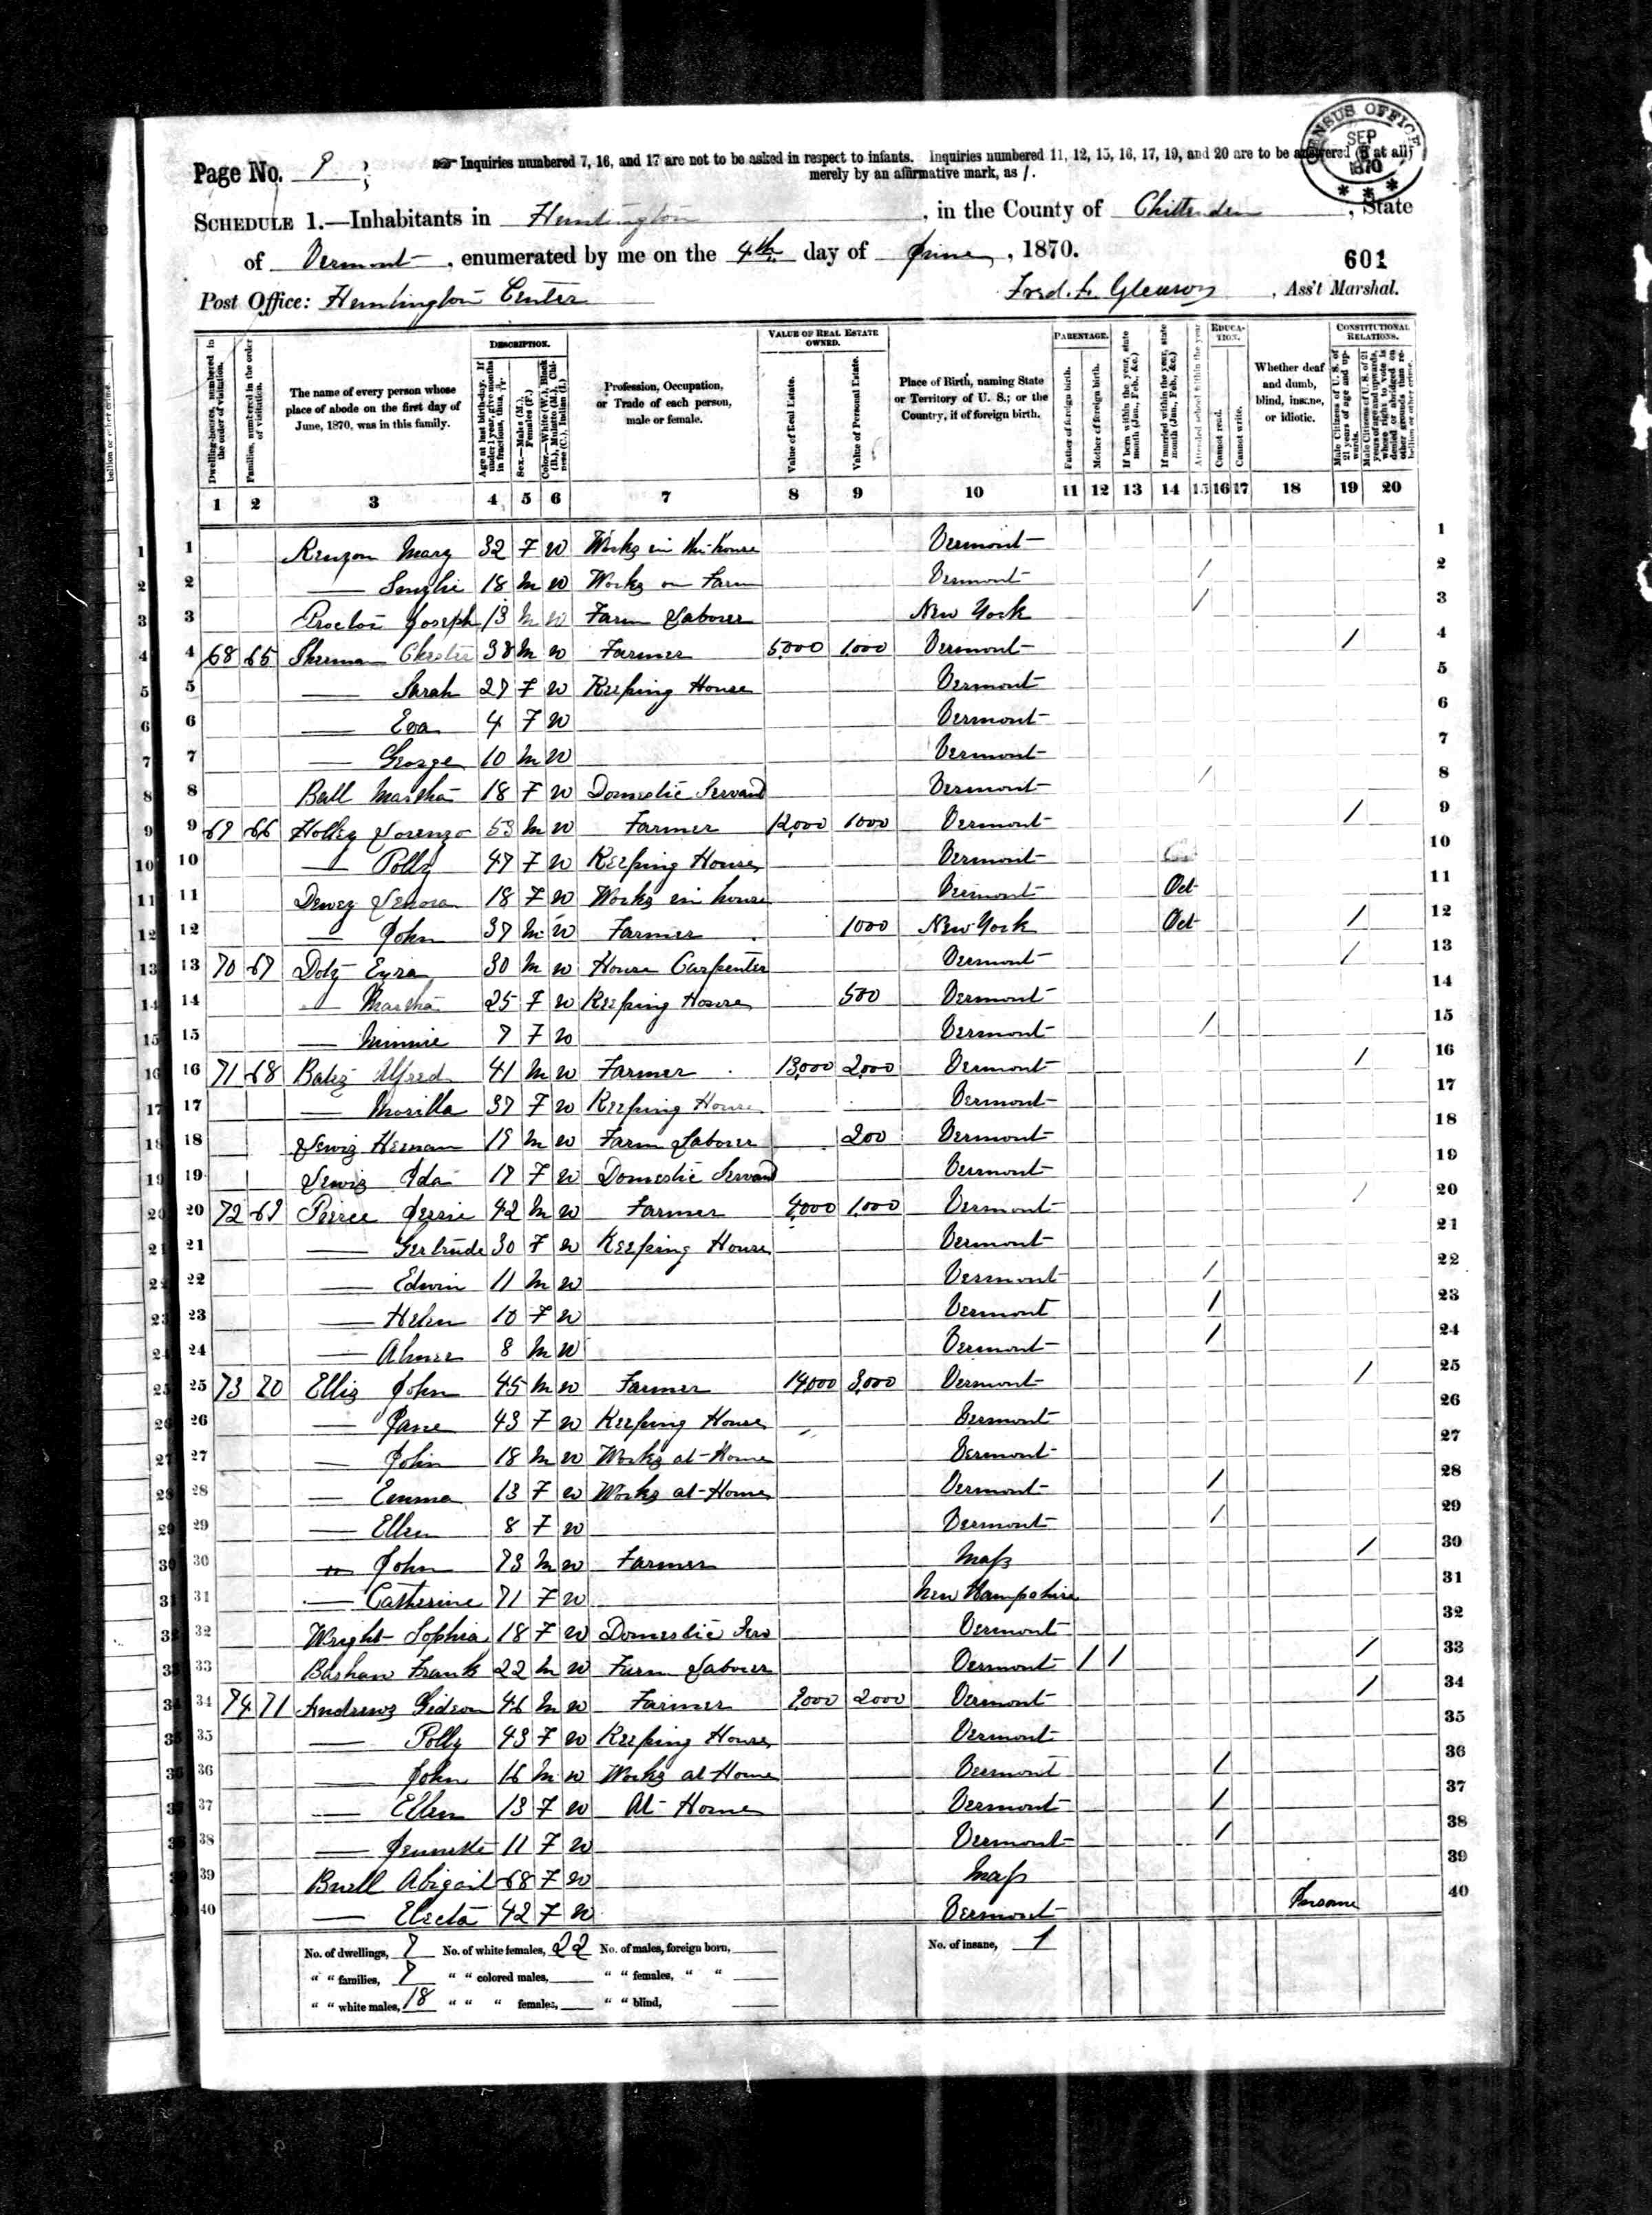 Page No. 9
Inquiries numbered 7, 16, and 17 are not to be asked in respect to infants. Inquiries numbered 11, 12, 15, 16, 17, 19, and 20 are to be answered (if at all)
merely by an affirmative mark, as /.
CENSUS OFFICE SEP 1870
SCHEDULE 1.—Inhabitants in Huntington, in the County of Chittenden, State
of Vermont, enumerated by me on the 4th day of June, 1870.
601
Post Office: Huntington Center
Gleason, Ass't Marshal.
Dwelling-houses, numbered in the order of visitation.
Families, numbered in the order of visitation.
The name of every person whose place of abode on the first day of June, 1870, was in this family.
DESCRIPTION.
Age at last birth-day. If under 1 year, give months in fractions, thus, 
Sex.—Males (M.), Females (F.)
Color.—White (W.), Black (B.), Mulatto (M.), Chinese (C.), Indian (I.)
Profession, Occupation, or Trade of each person, male or female.
VALUE OF REAL ESTATE OWNED.
Value of Real Estate.
Value of Personal Estate.
Place of Birth, naming State or Territory of U. S.; or the Country, if of foreign birth.
PARENTAGE.
Father of foreign birth.
Mother of foreign birth.
If born within the year, state month (Jan., Feb., &c.)
If married within the year, state month (Jan., Feb., &c.)
Attended school within the year
EDUCATION.
Cannot read.
Cannot write.
Whether deaf and dumb, blind, insane, or idiotic.
CONSTITUTIONAL RELATIONS.
Male Citizens of U. S. of 21 years of age and upwards.
Male Citizens of U. S. of 21 years of age and upwards, whose right to vote is denied or abridged on other grounds than rebellion or other crime.
1 2 3 4 5 6 7 8 9 10 11 12 13 14 15 16 17 18 19 20
1 Mary 32 F W Works in the house Vermont 1
2 — 18 M W Works on Farm Vermont / 2
3 Proctor Joseph 13 M W Farm Laborer New York / 3
4 68 65 Sherman Chester 38 M W Farmer 5,000 1,000 Vermont / 4
5 — Sarah 27 F W Keeping House Vermont 5
6 — Eva 4 F W Vermont 6
7 — George 10 M W Vermont 7
8 Ball Martha 18 F W Domestic Servant Vermont / 8
9 69 66 Holley Lorenzo 53 M W Farmer 12,000 1000 Vermont / 9
10 — Polly 47 F W Keeping House Vermont 10
11 Dewey Lenora 18 F W Works in house Vermont Oct 11
12 — John 37 M W Farmer 1000 New York Oct / 12
13 70 67 Doty Ezra 30 M W House Carpenter Vermont / 13
14 — Martha 25 F W Keeping House 500 Vermont 14
15 — Minnie 7 F W Vermont / 15
16 71 68 Alfred 41 M W Farmer 13,000 2,000 Vermont / 16
17 — Morilla 37 F W Keeping House Vermont 17
18 Lewis Heman 19 M W Farm Laborer 200 Vermont 18
19 Lewis Ida 17 F W Domestic Servant Vermont 19
20 72 69 Peirce Jessie 42 M W Farmer 4,000 1,000 Vermont / 20
21 — Gertrude 30 F W Keeping House Vermont 21
22 — Edwin 11 M W Vermont / 22
23 — Helen 10 F W Vermont / 23
24 — Abner 8 M W Vermont / 24
25 73 70 Ellis John 45 M W Farmer 14,000 3,000 Vermont / 25
26 — Jane 43 F W Keeping House Vermont 26
27 — John 18 M W Works at Home Vermont 27
28 — Emma 13 F W Works at Home Vermont / 28
29 — Ellen 8 F W Vermont / 29
30 — John 73 M W Farmer Mass / 30
31 — Catherine 71 F W New Hampshire 31
32 Wright Sophia 18 F W Domestic Serv Vermont 32
33 Bashaw Frank 22 M W Farm Laborer Vermont / / / 33
34 74 71 Andrews Gideon 46 M W Farmer 2000 Vermont / 34
35 — Polly 43 F W Keeping House Vermont 35
36 — John 16 M W Works at Home Vermont / 36
37 — Ellen 13 F W At Home Vermont / 37
38 — Jennette 11 F W Vermont / 38
39 Buell Abigail 68 F W Mass 39
40 — Electa 42 F W Vermont Insane 40
No. of dwellings, 7 No. of white females, 22 No. of males, foreign born, No. of insane, 1
" " families, 7 " " colored males, " " females, " "
" " white males, 18 " " " females, " " blind,